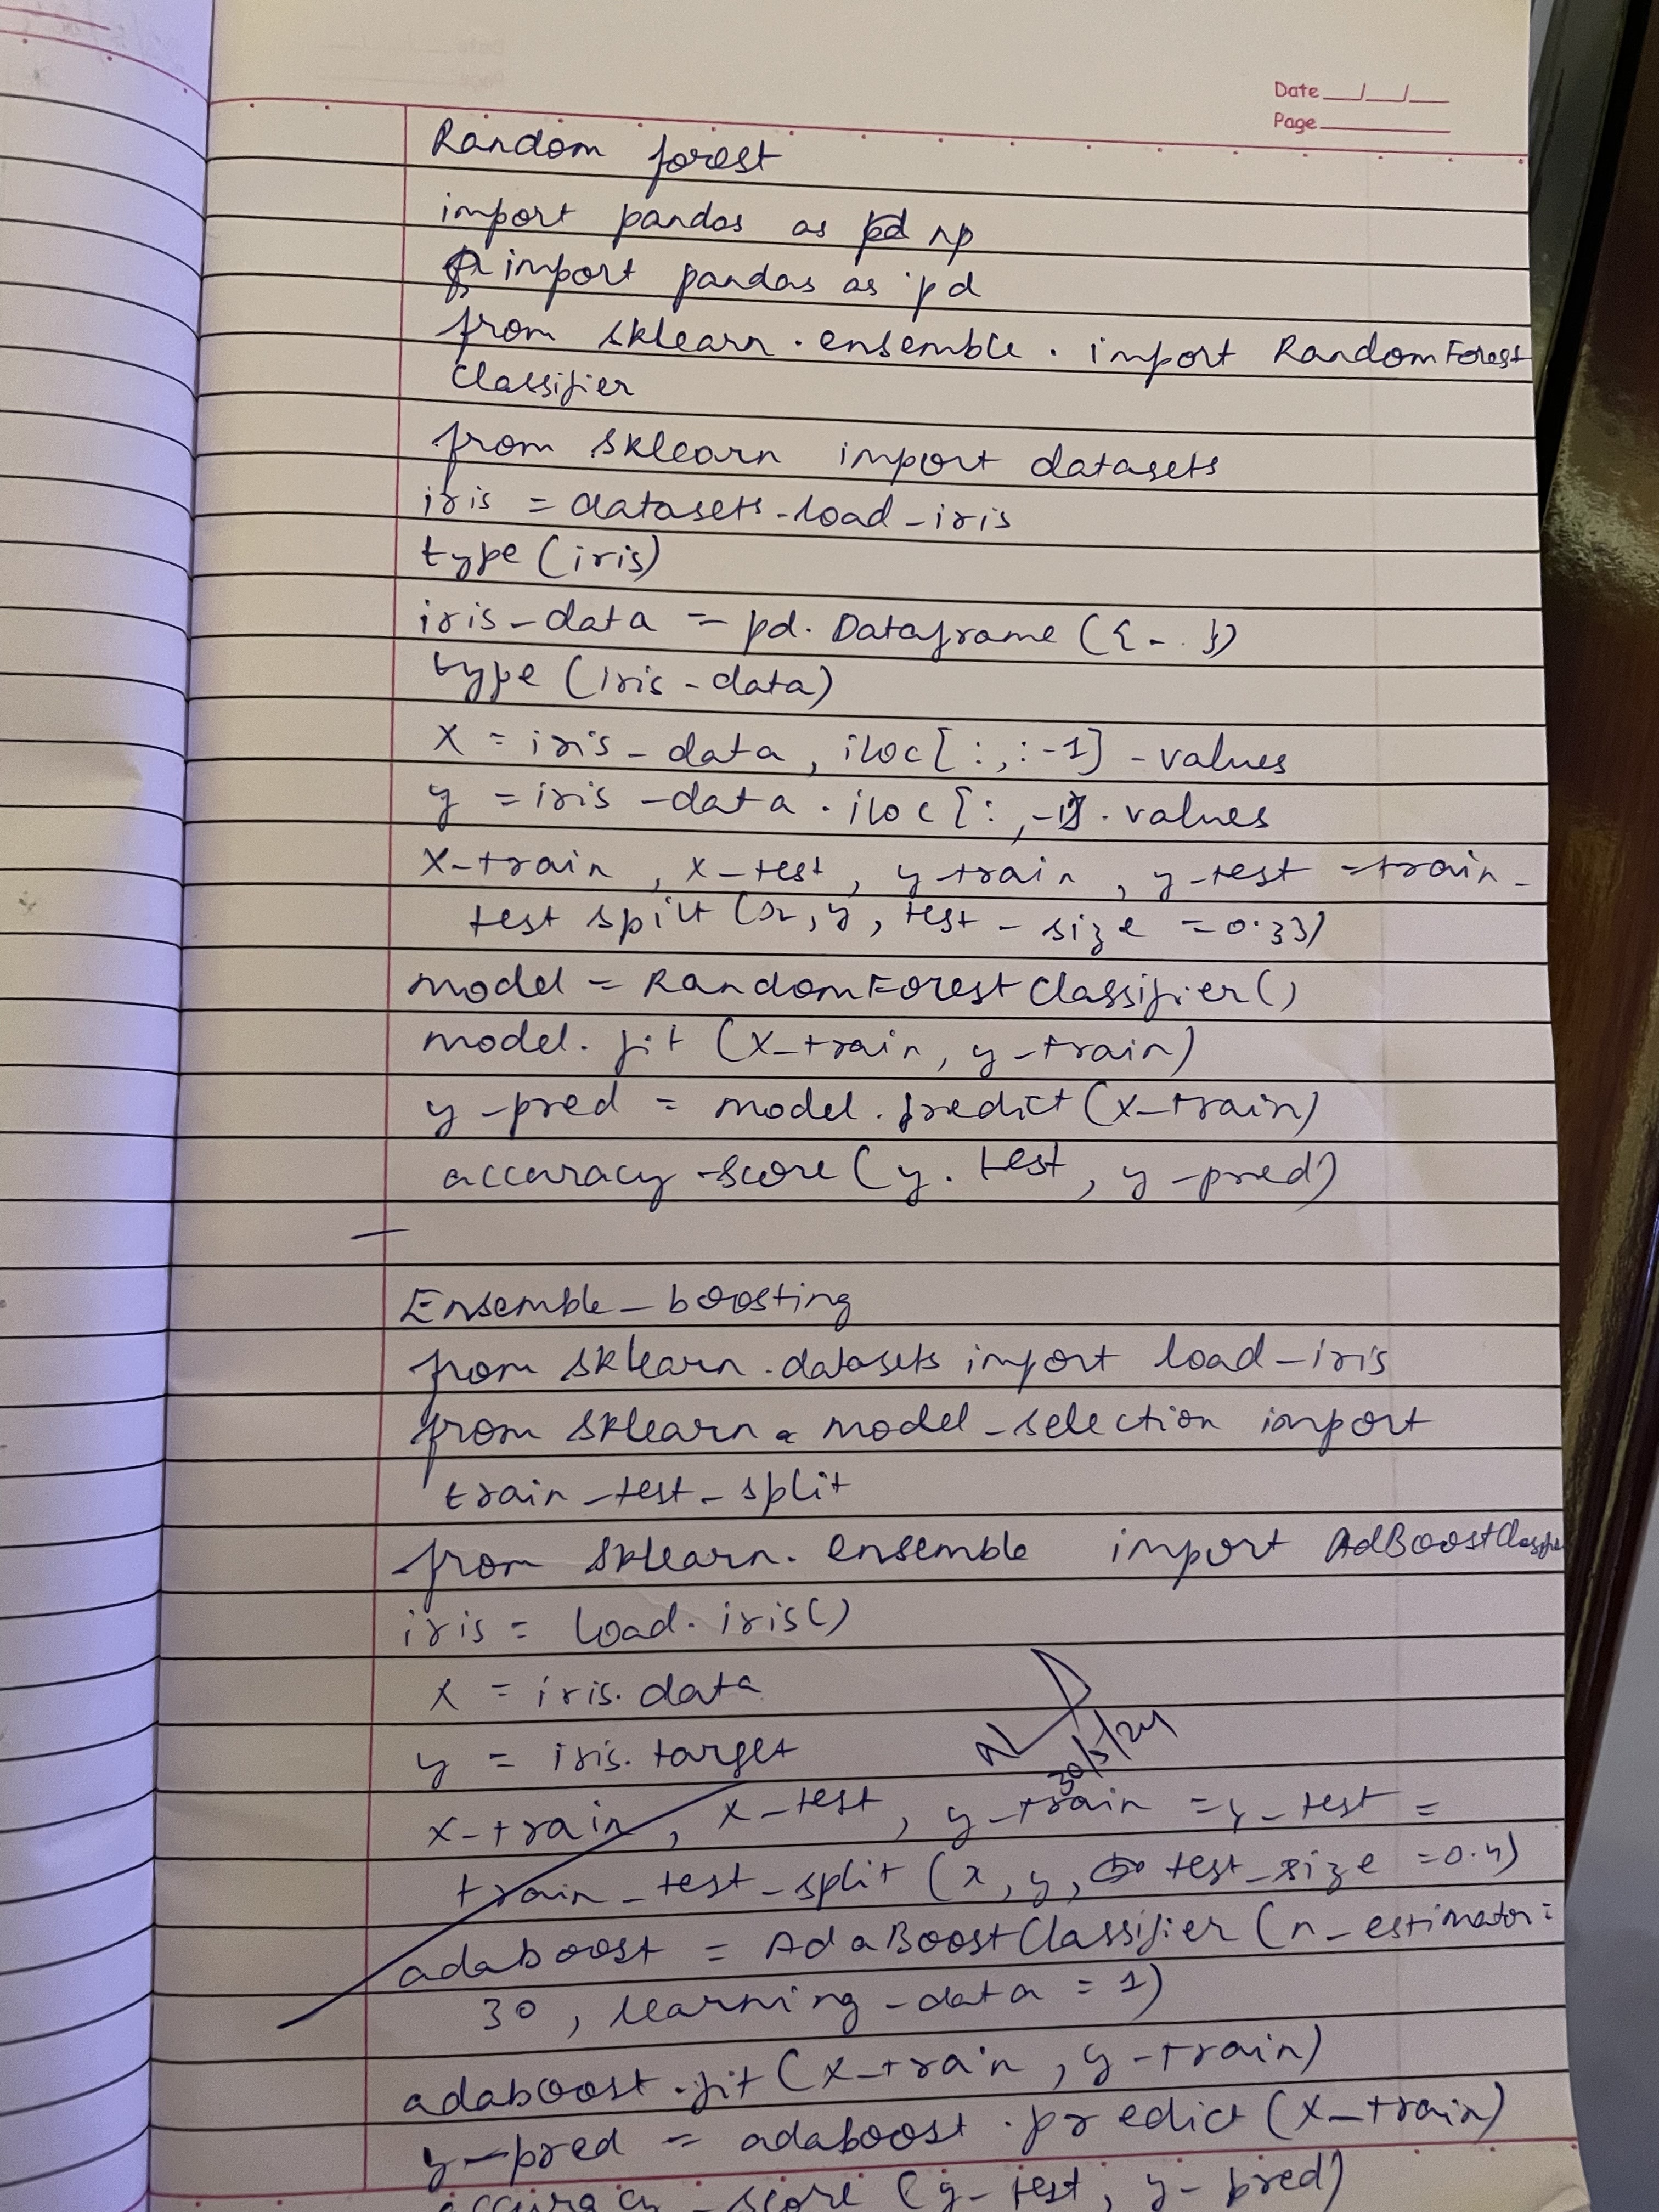 Date __/__/__
Page
Random forest
import pandas as pd np
import pandas as pd
from sklearn . ensemble . import RandomForest
Classifier
from sklearn import datasets
iris = datasets - load - iris
type (iris)
iris - data = pd. Dataframe ({ - . })
type (iris - data)
X = iris - data , iloc [ : , : -1] - values
y = iris - data . iloc [ : , -1] . values
X - train , x - test , y train , y - test = train -
test spilt (x, y, test - size = 0.33)
model = RandomForestClassifier()
model. fit (X_train, y - train)
y - pred = model . predict (X_train)
accuracy - score ( y . test , y - pred)
Ensemble - boosting
from sklearn . datasets import load - iris
from sklearn . model - selection import
train - test - split
from sklearn. ensemble import AdBoostClassifier
iris = load . iris()
x = iris. data
y = iris. target
30/5/24
x - train , x - test , y - train = y - test =
train - test - split (x, y, test - size = 0.4)
adaboost = AdaBoostClassifier (n - estimator =
30 , learning - data = 1)
adaboost . fit (X - train , y - train)
y - pred = adaboost . predict (X - train)
accuracy - score (y - test , y - pred)